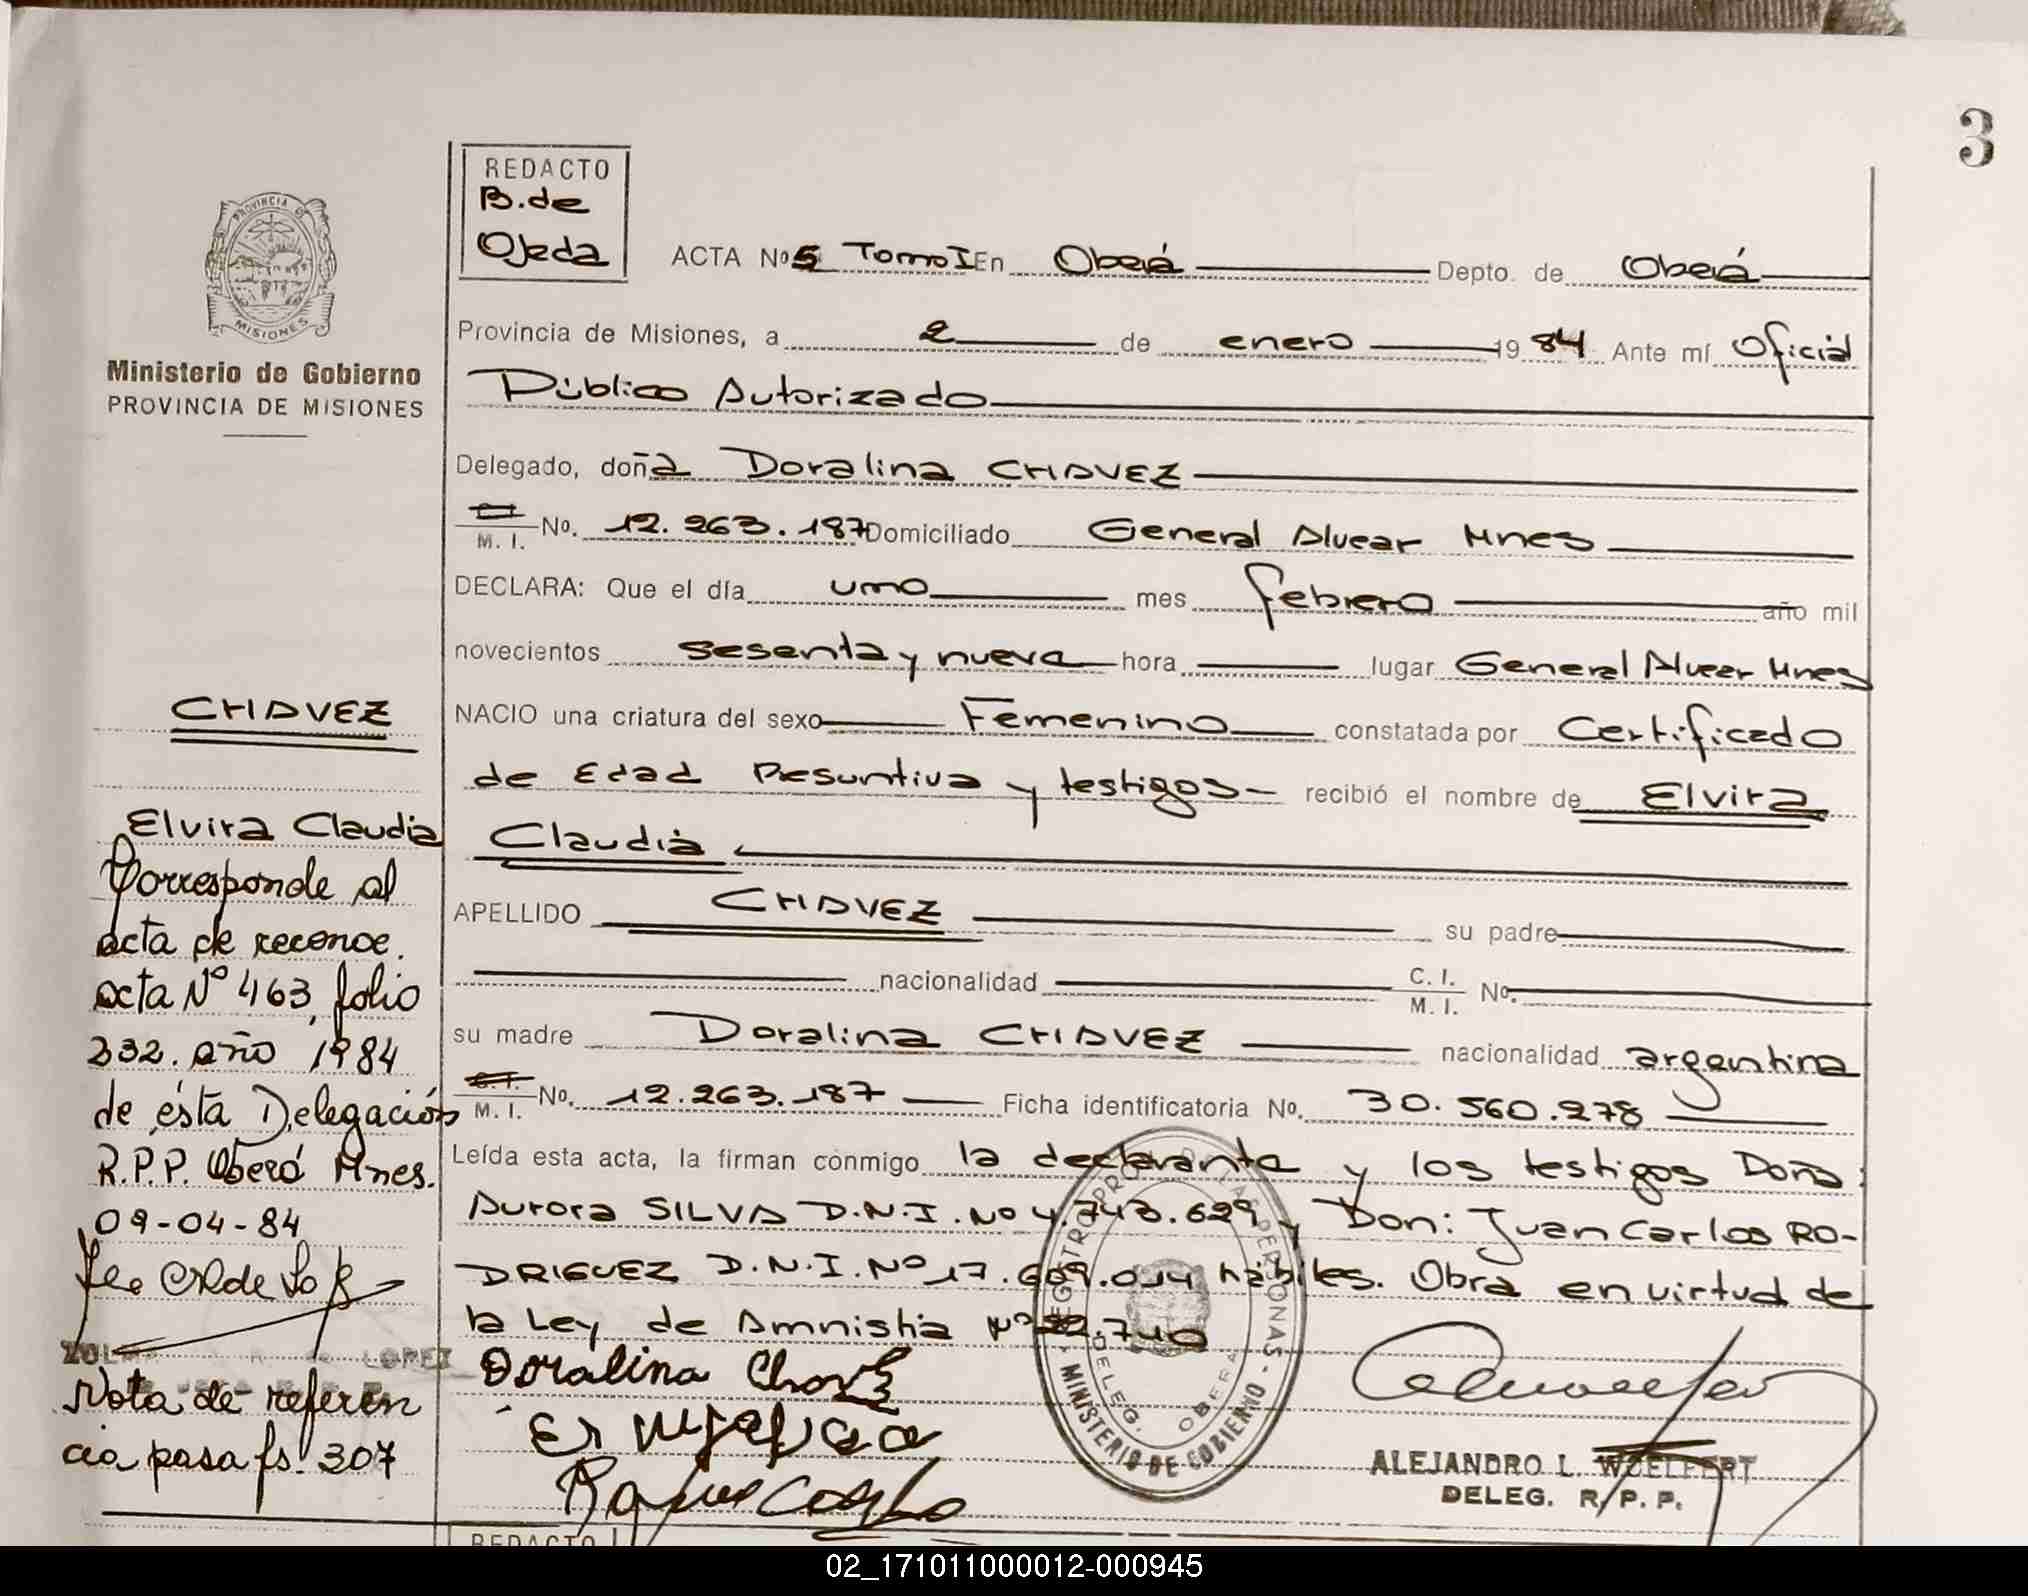 3
REDACTO
B. de
Ojeda
PROVINCIA DE
MISIONES
Ministerio de Gobierno
PROVINCIA DE MISIONES
ACTA Nº 5 Tomo I En Oberá Depto. de Oberá
Provincia de Misiones, a 2 de enero 1984 Ante mí Oficial
Público Autorizado
Delegado, doña Doralina CHAVEZ
C.I. M. I. No. 12.263.187 Domiciliado General Alvear Mnes
DECLARA: Que el día uno mes febrero año mil
novecientos sesenta y nueve hora lugar General Alvear Mnes
NACIO una criatura del sexo Femenino constatada por Certificado
de Edad Presuntiva y testigos recibió el nombre de Elvira
Claudia
APELLIDO CHAVEZ su padre
nacionalidad C. I. M. I. No.
su madre Doralina CHAVEZ nacionalidad argentina
C.I. M. I. No. 12.263.187 Ficha identificatoria No. 30.560.278
Leída esta acta, la firman conmigo la declarante y los testigos Doña:
Aurora SILVA D.N.I. Nº 4.743.629 y Don: Juan Carlos RO-
DRIGUEZ D.N.I. Nº 17.609.014 hábiles. Obra en virtud de
la Ley de Amnistia Nº 22.740
Doralina Chavez
ALEJANDRO L. WOELFERT
DELEG. R. P. P.
MINISTERIO DE GOBIERNO
DELEG. OBERA
CHAVEZ
Elvira Claudia
Corresponde al
acta de reconoc.
acta Nº 463, folio
232. año 1984
de ésta Delegación
R.P.P. Oberá Mnes.
09-04-84
LOPEZ
Nota de referen
cia pasa fs. 307
REDACTO
02_171011000012-000945